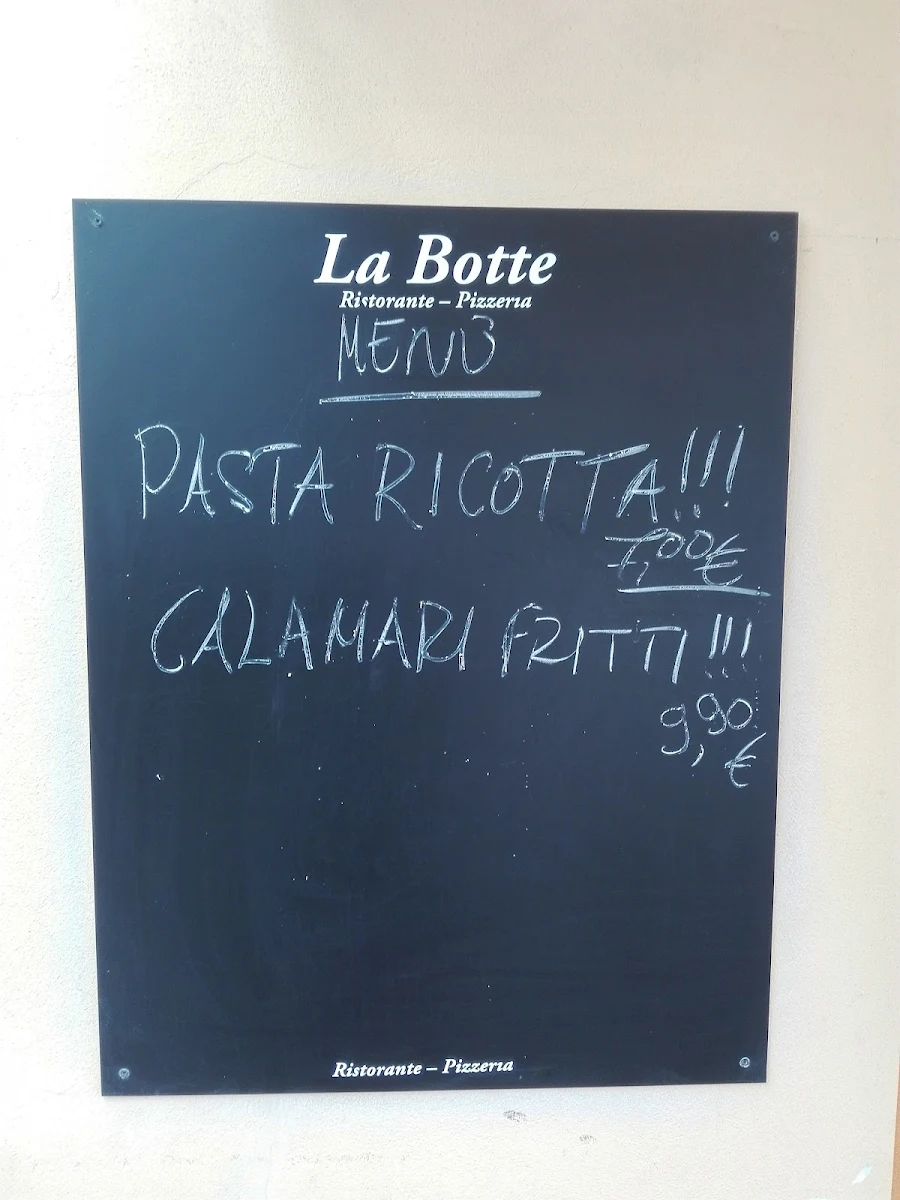 La Botte
Ristorante – Pizzeria
MENÙ
PASTA RICOTTA!!!
7,00€
CALAMARI FRITTI!!!
9,90
€
Ristorante – Pizzeria